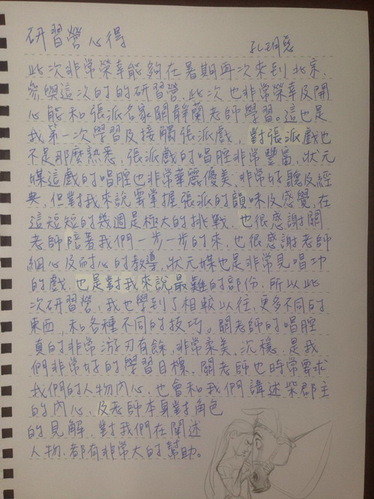 研習營心得
此次非常榮幸能夠在暑期再次來到北京,
參與這次的研習營,此次也非常榮幸及開
心能和張派名家關靜蘭老師學習。這也是
我第一次學習及接觸張派戲,對張派戲也
不是那麼熟悉,張派戲的唱腔非常豐富,狀元
媒這戲的唱腔也非常華麗優美、非常好聽及經
典,但對我來說要掌握張派的韻味及感覺,在
這短短的幾週是極大的挑戰,也很感謝關
老師陪著我們一步一步的來,也很感謝老師
細心及耐心的教導,狀元媒也是非常見唱功
的戲,也是對我來說最難的部份,所以此
次研習營,我也學到了相較以往,更多不同的
東西,和各種不同的技巧,關老師的唱腔
真的非常游刃有餘,非常柔美、沉穩,是我
們非常好的學習目標,關老師也時常要求
我們的人物內心,也會和我們講述柴郡主
的內心,及老師本身對角色
的見解,對我們在闡述
人物,都有非常大的幫助。